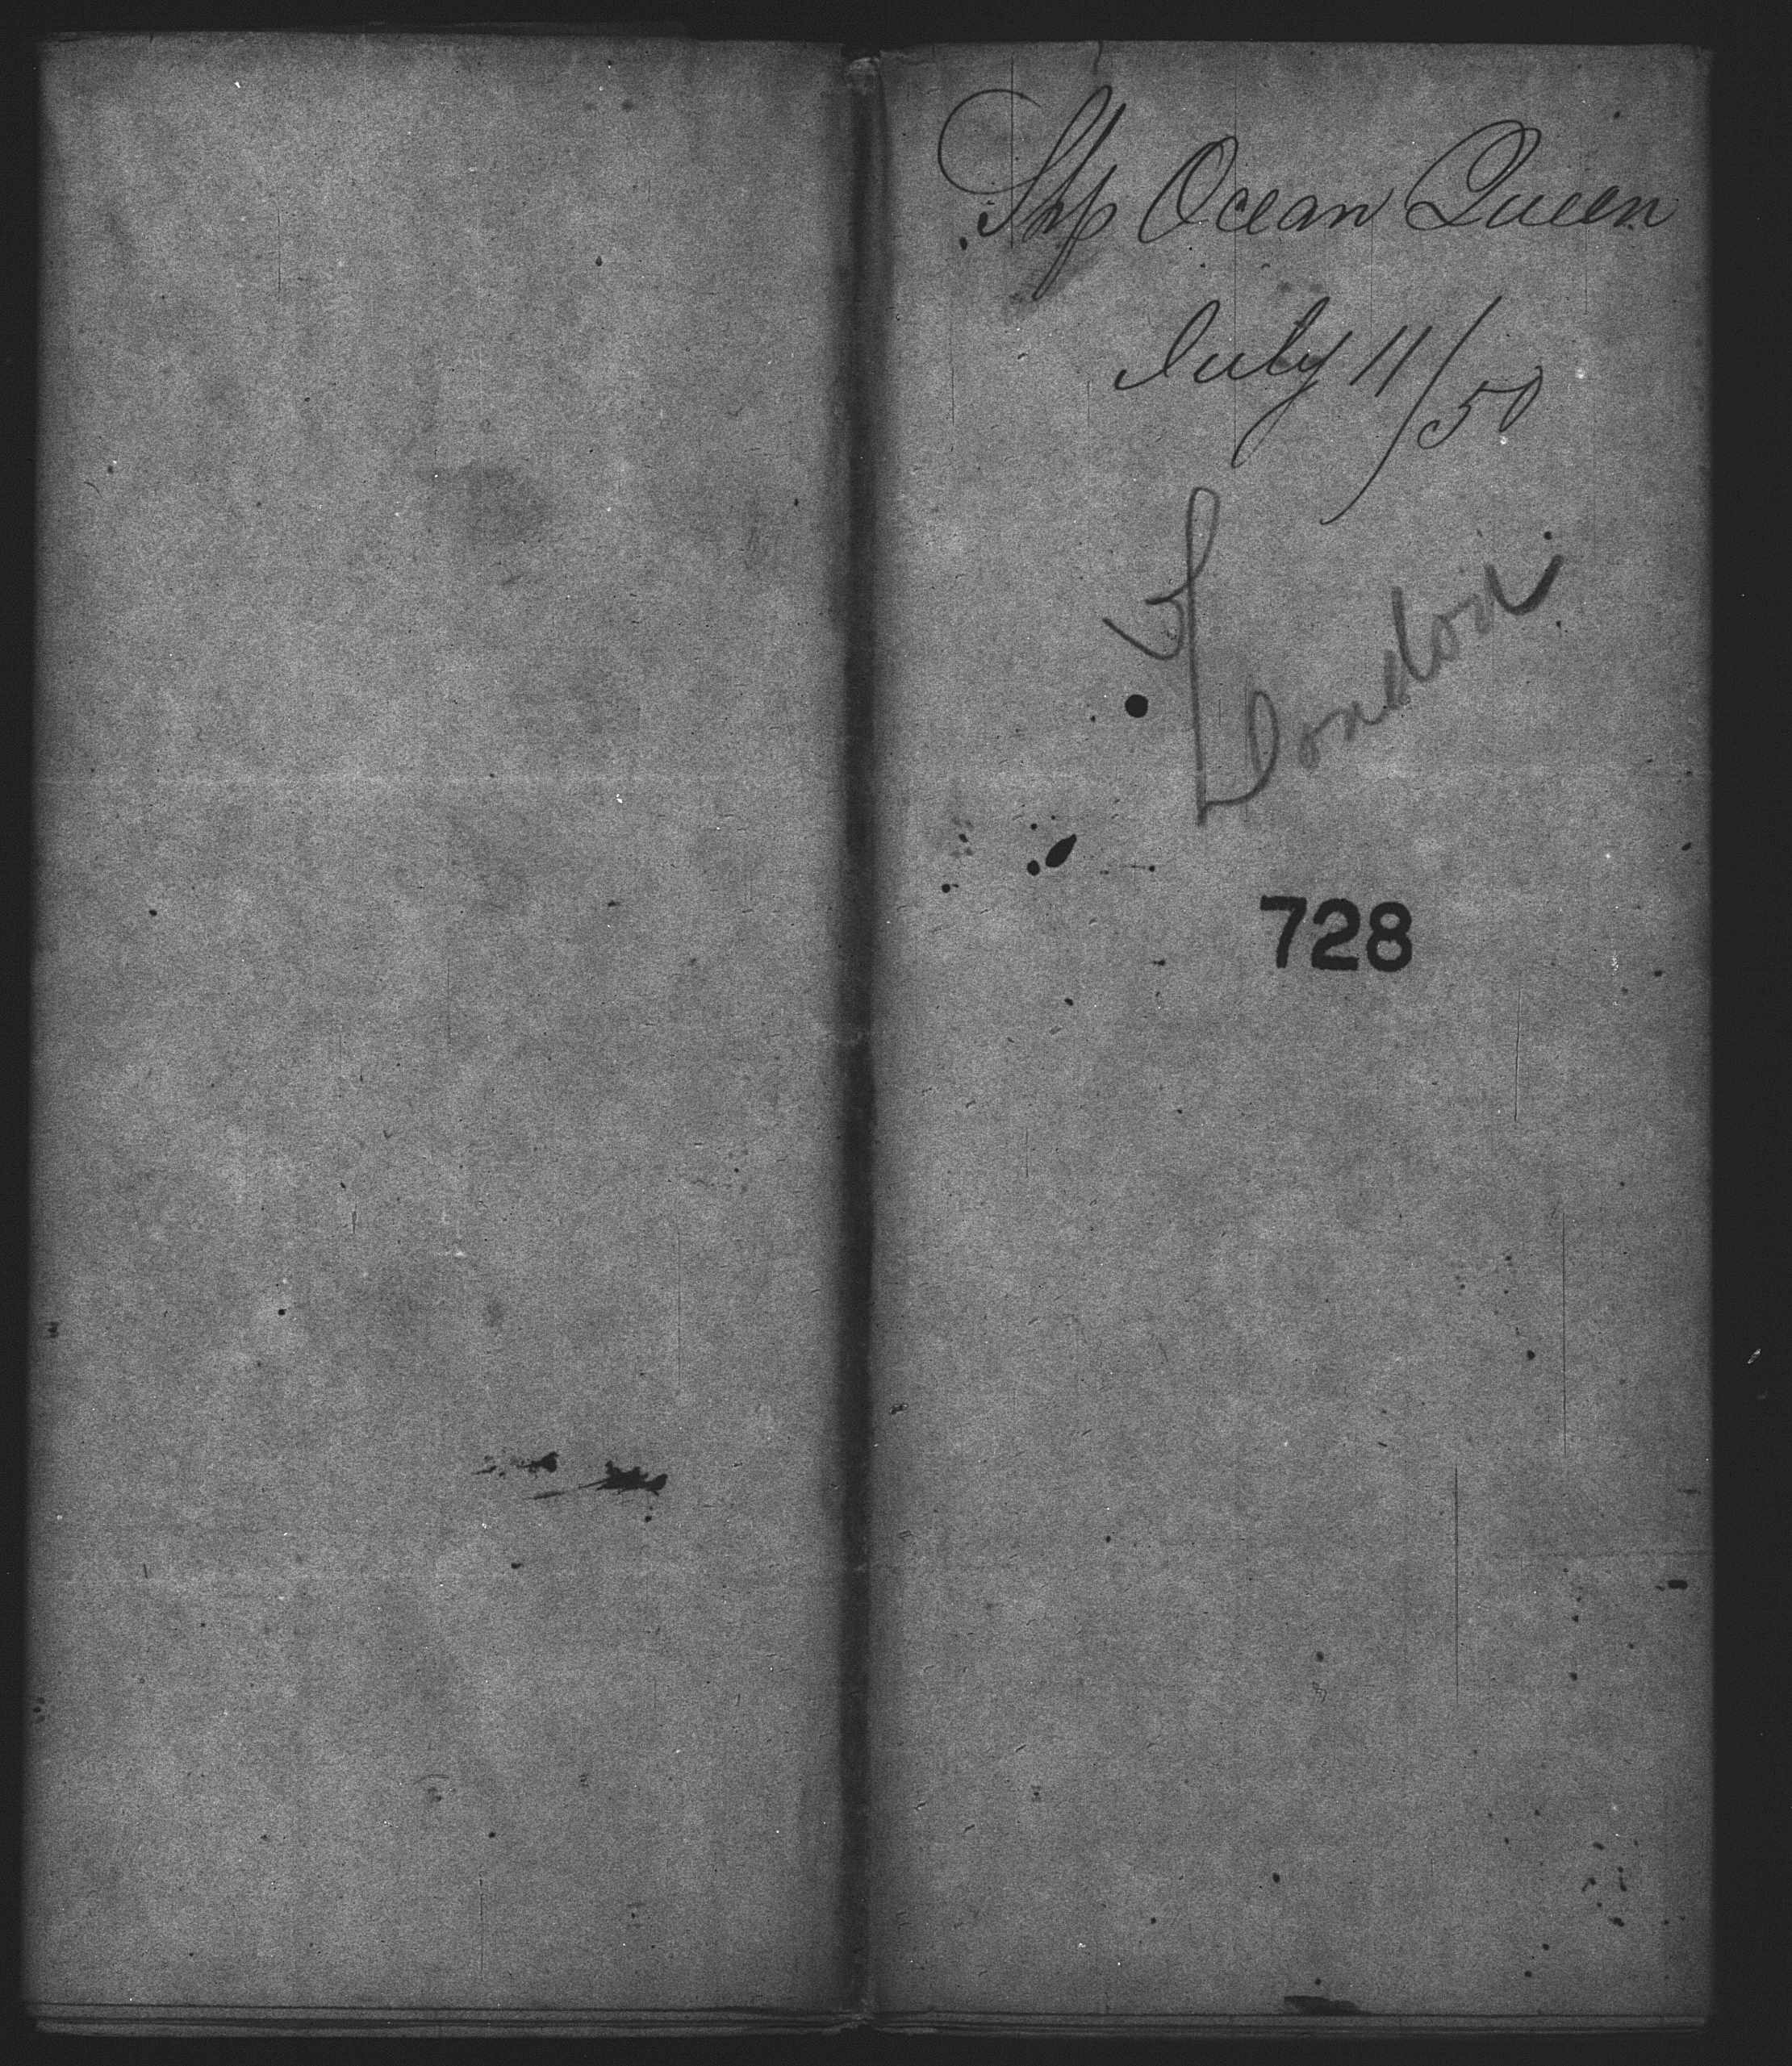 Shp Ocean Queen
July 11/50
London
728